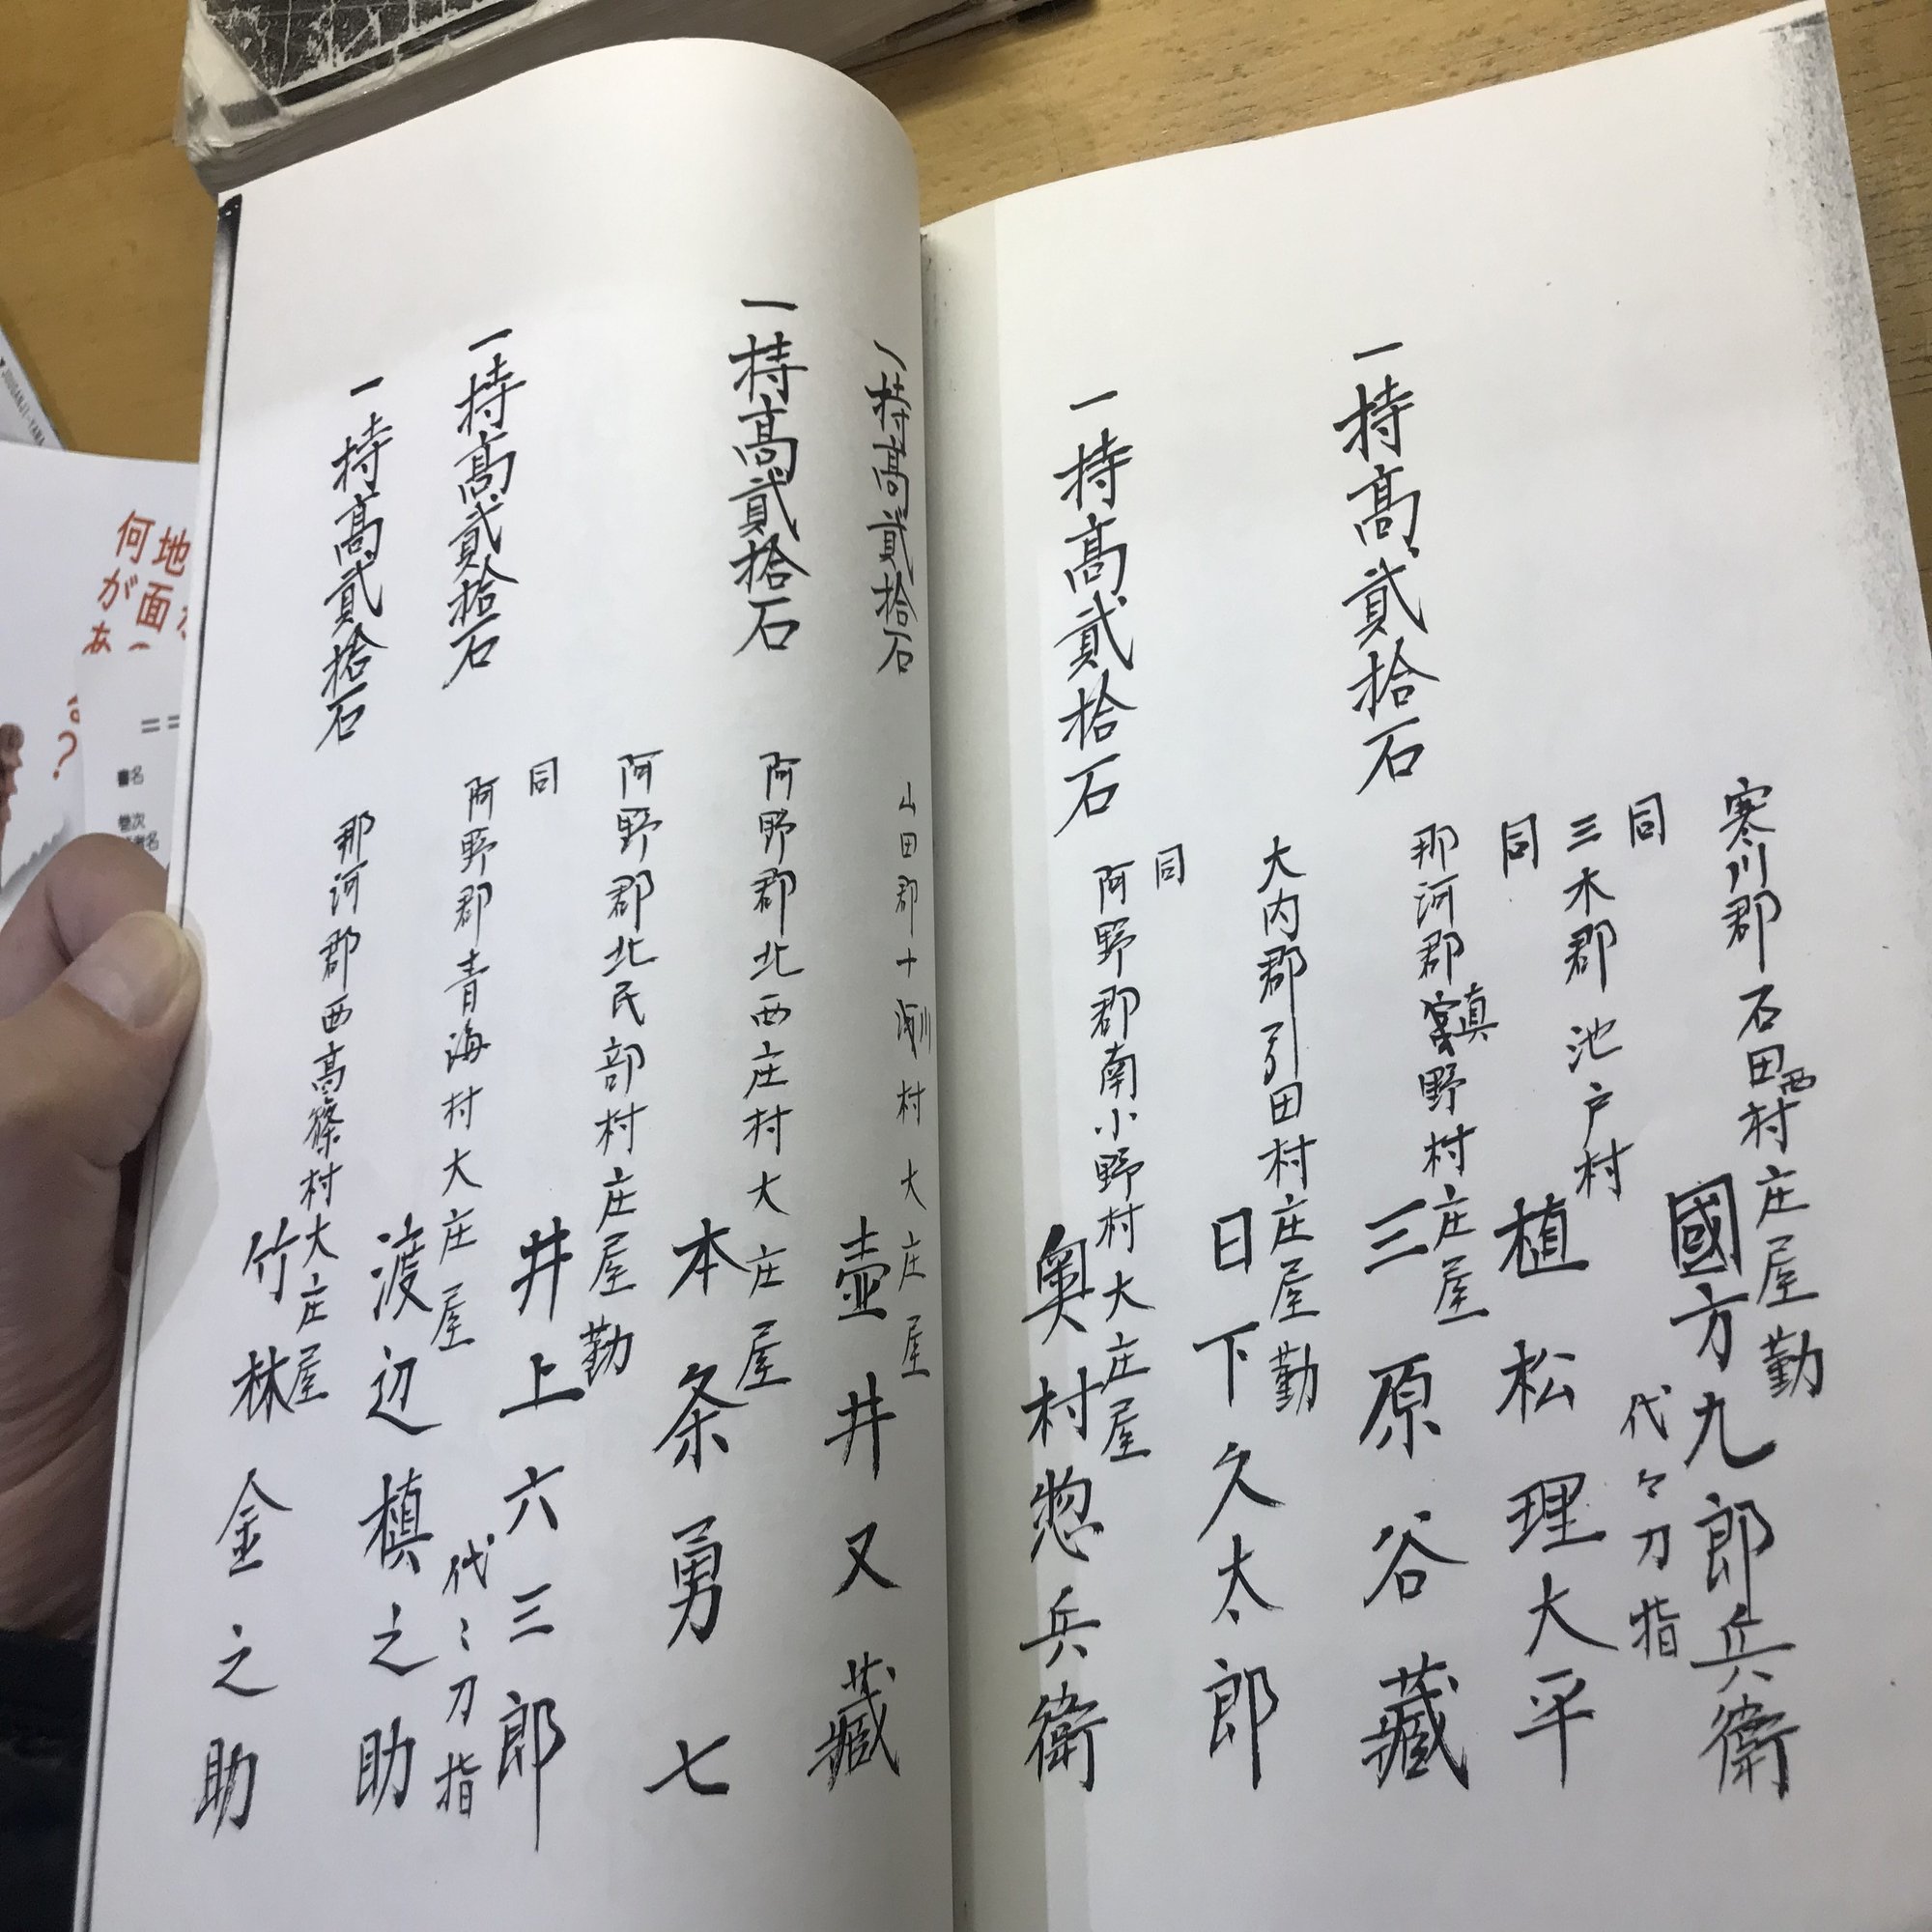 寒川郡石田西村庄屋勤
國方九郎兵衛
同
代々刀指
三木郡池戸村
植松理大平
同
一持高貳拾石
那河郡真野村庄屋
三原谷藏
大内郡引田村庄屋勤
日下久太郎
同
一持高貳拾石
阿野郡南小野村大庄屋
奥村惣兵衛
一持高貳拾石
山田郡十川村大庄屋
壺井又藏
一持高貳拾石
阿野郡北西庄村大庄屋
本条勇七
阿野郡北民部村庄屋勤
井上六三郎
同
代々刀指
一持高貳拾石
阿野郡青海村大庄屋
渡辺槙之助
一持高貳拾石
那河郡西高篠村大庄屋
竹林金之助
地面
何が
あ
？
書名
巻次